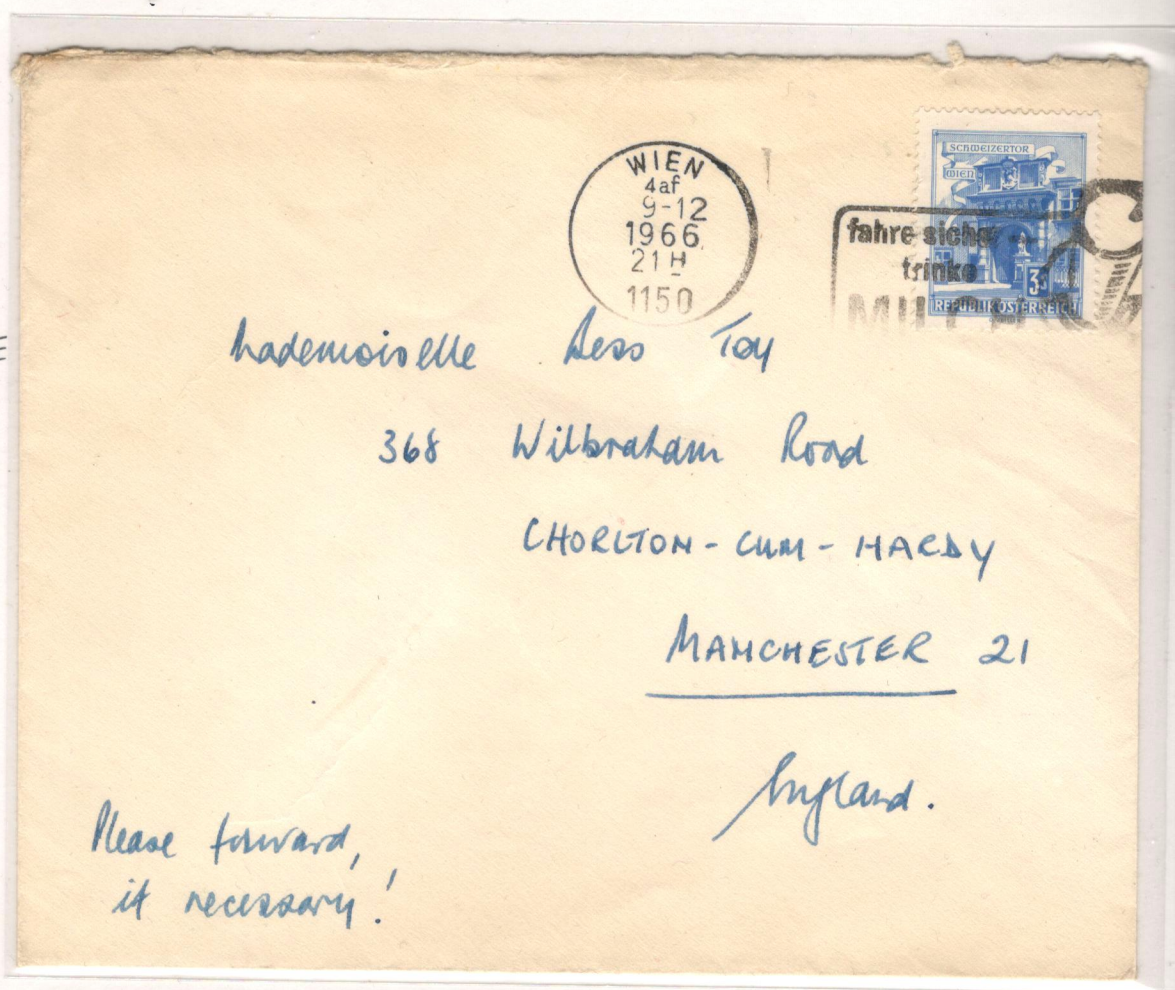 WIEN
4af
9-12
1966
21H
1150
SCHWEIZERTOR
WIEN
fahre sicher
trinke
MILCH
3S
REPUBLIK ÖSTERREICH
Mademoiselle Bess Toy
368 Wilbraham Road
CHORLTON-CUM-HARDY
MANCHESTER 21
England.
Please forward,
if necessary!